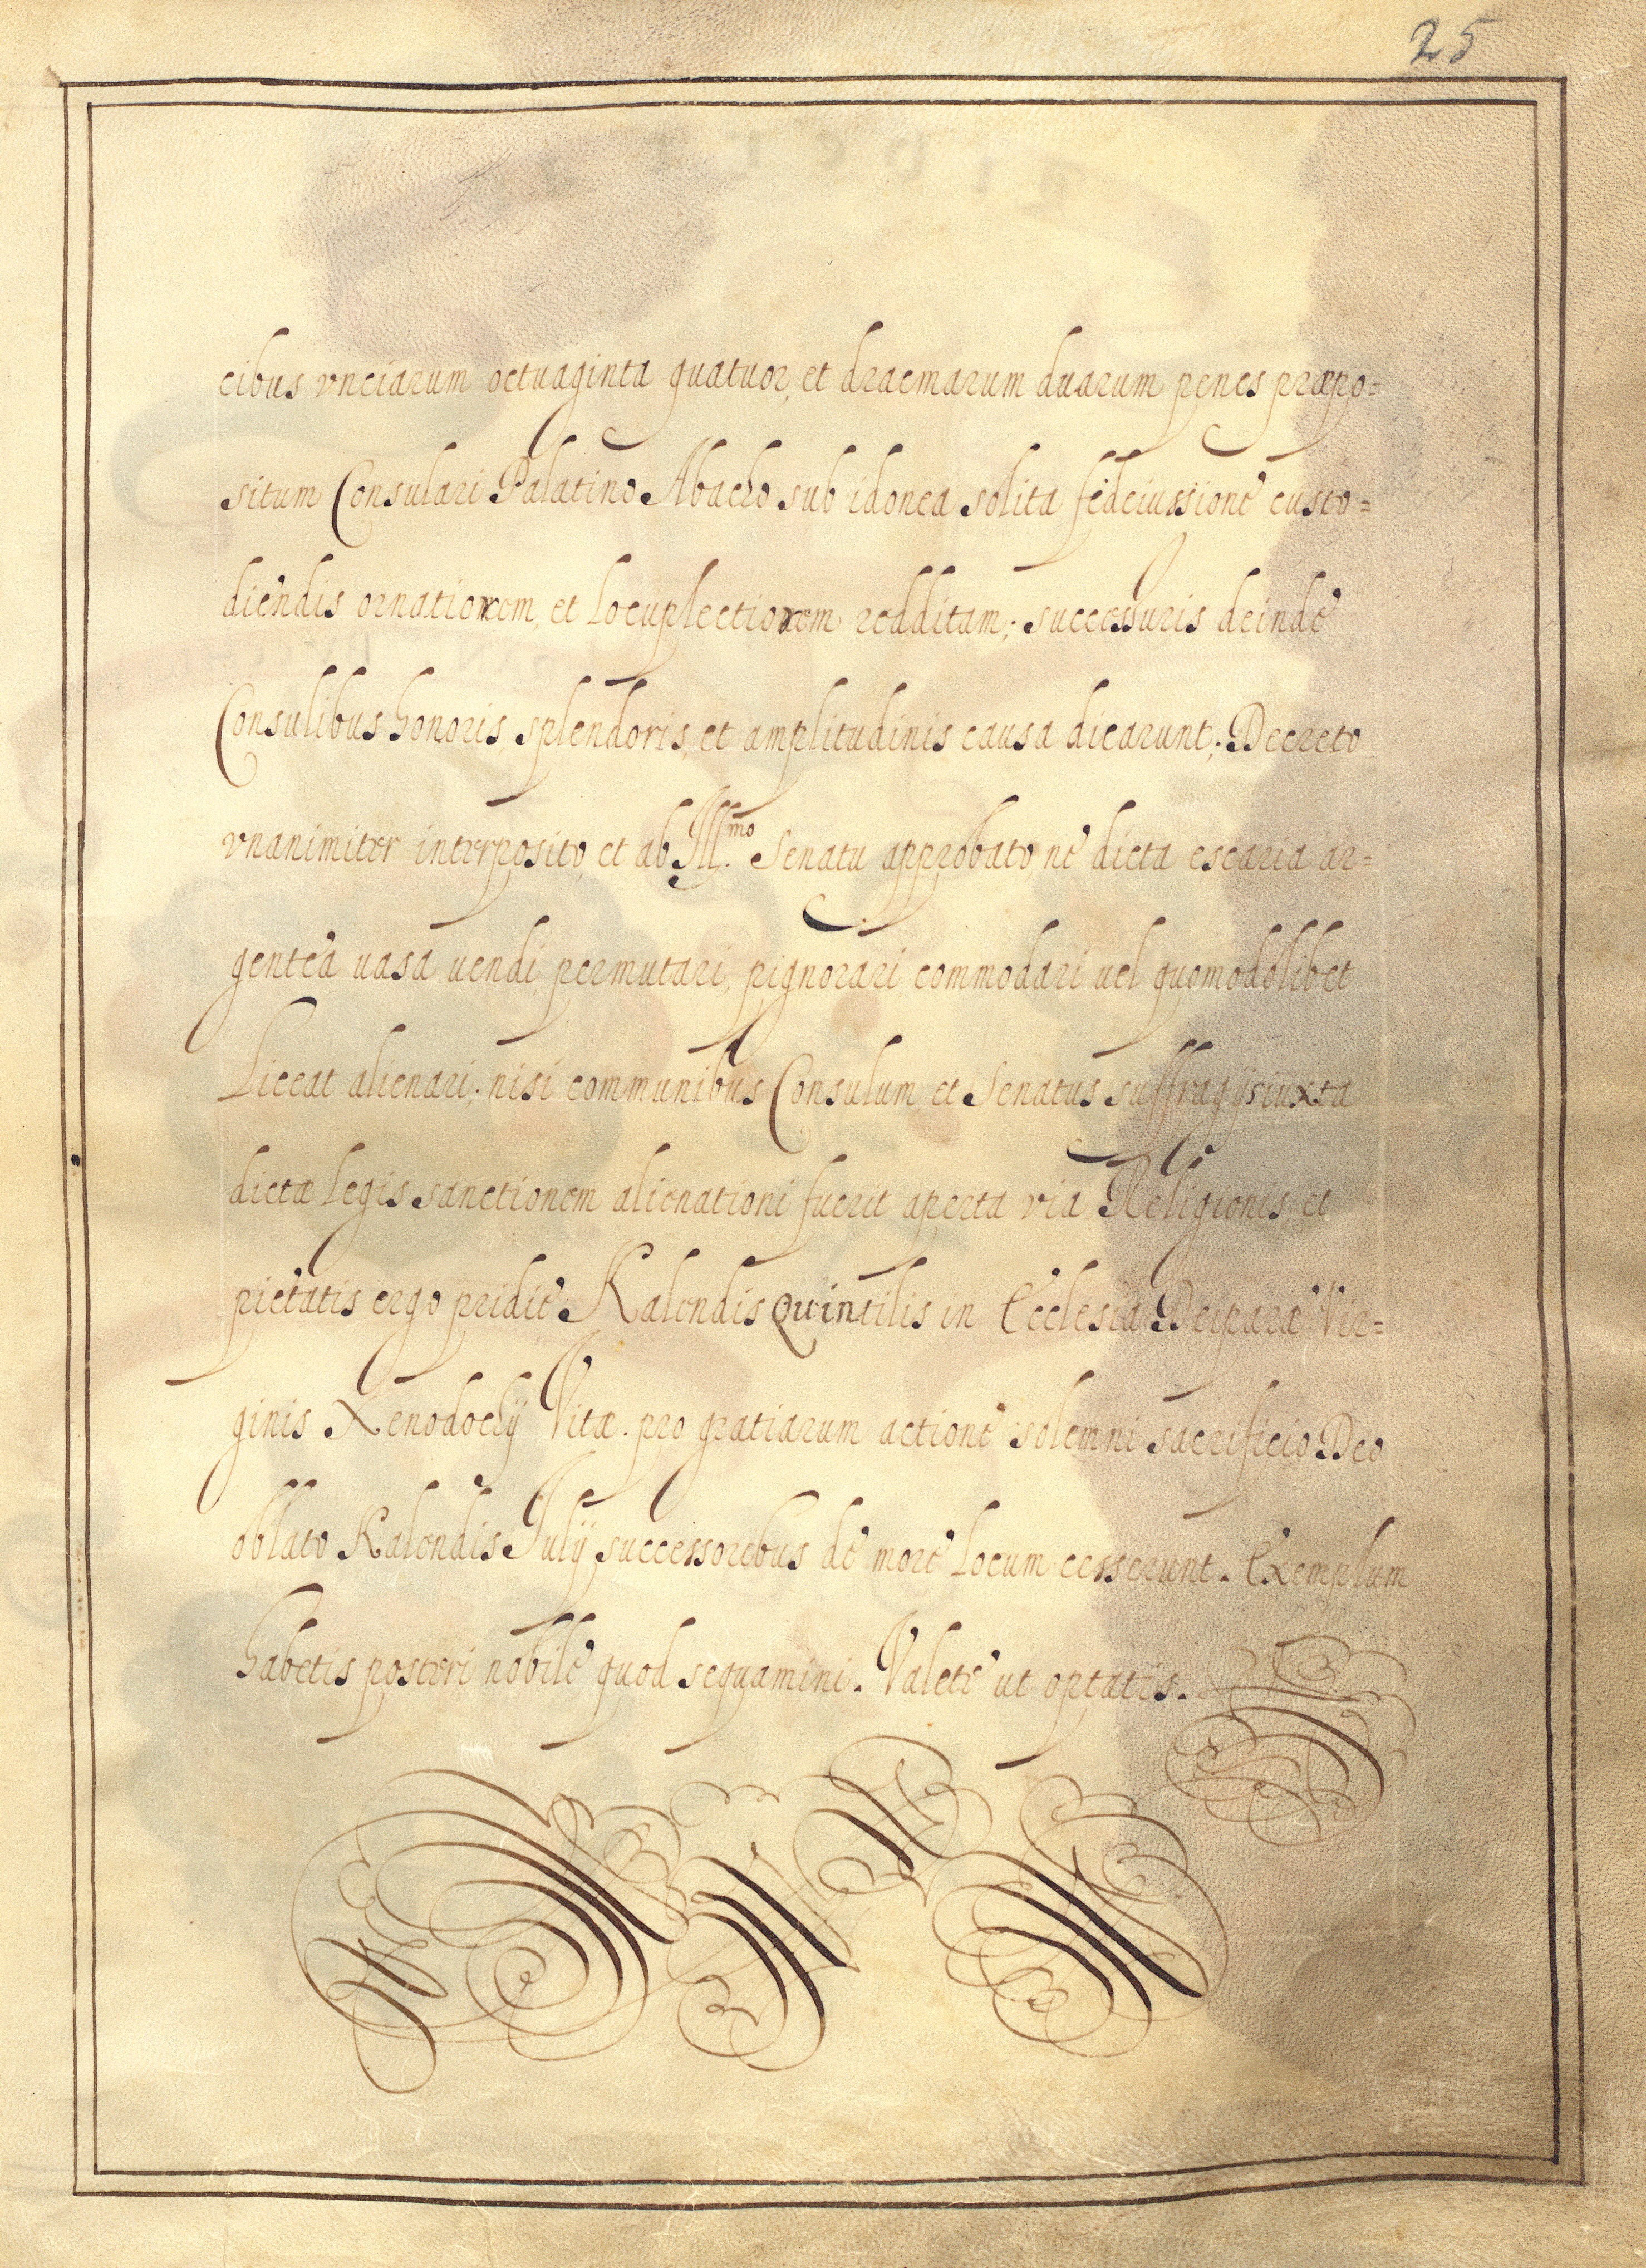 25
cibus vnciarum octuaginta quatuor, et dracmarum duarum penes præpo=
situm Consulari Palatino Abacho sub idonea solita fedeiussione custo=
diendis ornatiorem, et Locuplectiorem redditam; successuris deinde
Consulibus honoris, splendoris, et amplitudinis causa dicarunt; Decreto
vnanimiter interposito, et ab Ill.mo Senatu approbato, ne dicta escaria ar=
gentea uasa uendi, permutari, pignorari, commodari uel quomodolibet
Liceat alienari; nisi communibus Consulum et Senatus suffragijs iuxta
dictæ legis sanctionem alienationi fuerit aperta via Religionis, et
pietatis ergo pridie Kalendis Quintilis in Ecclesia Deiparæ Vir=
ginis Xenodochij Vitæ. pro gratiarum actione solemni sacrificio Deo
oblato Kalendis Julij successorebus de more Locum cesserunt. Exemplum
habetis posteri nobile quod sequamini. Valete ut optatis.